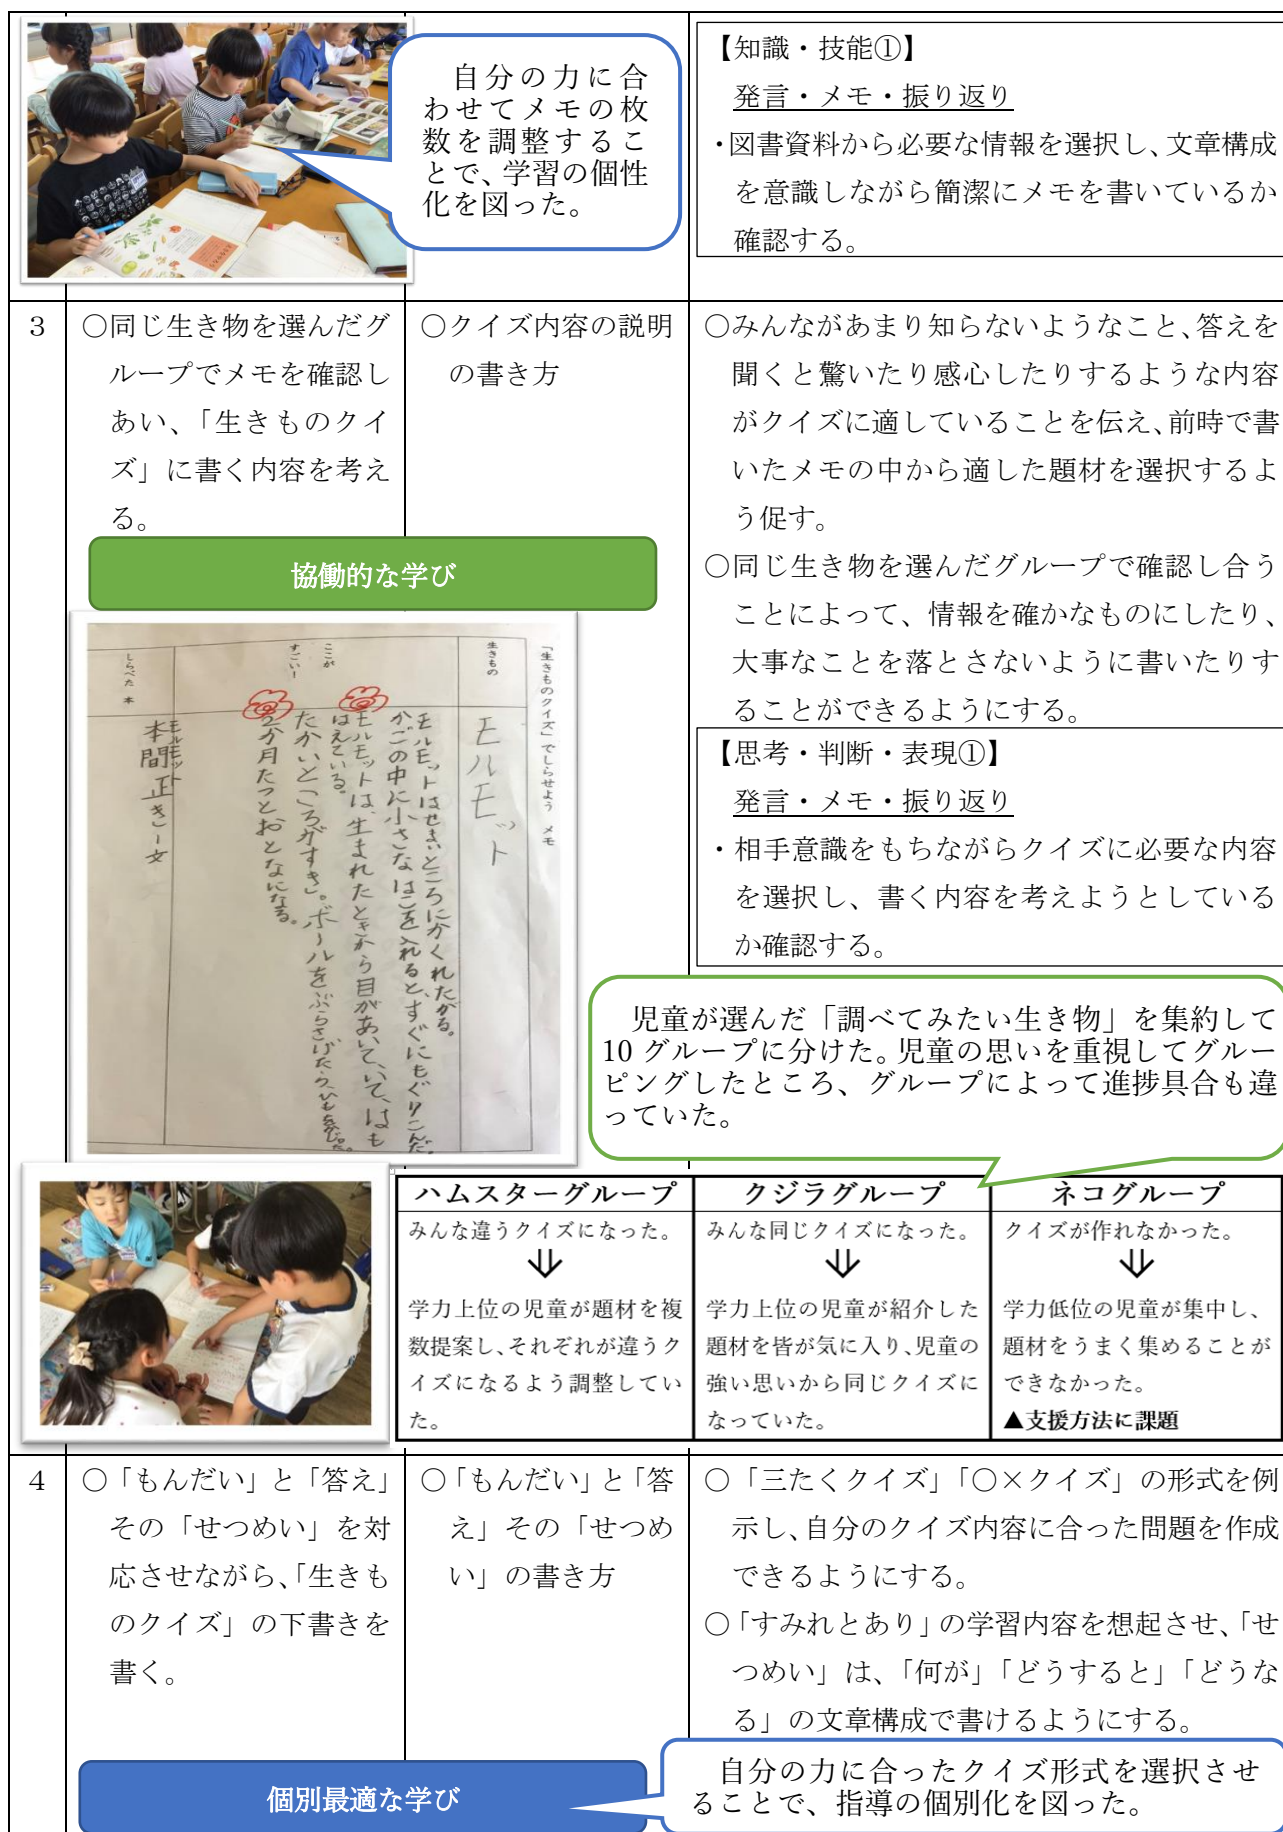 自分の力に合
わせてメモの枚
数を調整するこ
とで、学習の個性
化を図った。
【知識・技能①】
発言・メモ・振り返り
・図書資料から必要な情報を選択し、文章構成
を意識しながら簡潔にメモを書いているか
確認する。
3
〇同じ生き物を選んだグ
ループでメモを確認し
あい、「生きものクイ
ズ」に書く内容を考え
る。
〇クイズ内容の説明
の書き方
〇みんながあまり知らないようなこと、答えを
聞くと驚いたり感心したりするような内容
がクイズに適していることを伝え、前時で書
いたメモの中から適した題材を選択するよ
う促す。
〇同じ生き物を選んだグループで確認し合う
ことによって、情報を確かなものにしたり、
大事なことを落とさないように書いたりす
ることができるようにする。
協働的な学び
「生きものクイズ」でしらせよう メモ
生きもの
モルモット
ここが
すごい!
モルモットはせまいところにかくれたがる。
かごの中に小さなはこを入れると、すぐにもぐりこんだ。
モルモットは、生まれたときから目があいていて、はも
はえている。
たかいところがすき。ボールをぶらさげたら、
2か月たつとおとなになる。
しらべた 本
モルモット
本間正き 文
【思考・判断・表現①】
発言・メモ・振り返り
・相手意識をもちながらクイズに必要な内容
を選択し、書く内容を考えようとしている
か確認する。
児童が選んだ「調べてみたい生き物」を集約して
10 グループに分けた。児童の思いを重視してグルー
ピングしたところ、グループによって進捗具合も違
っていた。
ハムスターグループ
みんな違うクイズになった。
⇓
学力上位の児童が題材を複
数提案し、それぞれが違うク
イズになるよう調整してい
た。
クジラグループ
みんな同じクイズになった。
⇓
学力上位の児童が紹介した
題材を皆が気に入り、児童の
強い思いから同じクイズに
なっていた。
ネコグループ
クイズが作れなかった。
⇓
学力低位の児童が集中し、
題材をうまく集めることが
できなかった。
▲支援方法に課題
4
〇「もんだい」と「答え」
その「せつめい」を対
応させながら、「生きも
のクイズ」の下書きを
書く。
〇「もんだい」と「答
え」その「せつめ
い」の書き方
〇「三たくクイズ」「〇×クイズ」の形式を例
示し、自分のクイズ内容に合った問題を作成
できるようにする。
〇「すみれとあり」の学習内容を想起させ、「せ
つめい」は、「何が」「どうすると」「どうな
る」の文章構成で書けるようにする。
個別最適な学び
自分の力に合ったクイズ形式を選択させ
ることで、指導の個別化を図った。